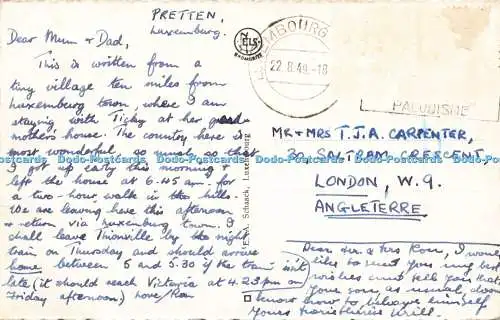 PRETTEN,
Luxemburg.
Dear Mum & Dad,
This is written from a
tiny village ten miles from
Luxemburg town, where I am
staying with Ticky at her grand
mothers house. The country here is
most wonderful, so much so that
I got up early this morning &
left the house at 6.45 am. for
a two-hour walk in the hills.
We are leaving here this afternoon
& return via Luxemburg town. I
shall leave Thionville by the night
train on Thursday and should arrive
home between 5 and 5.30 if the train isn't
late (it should reach Victoria at 4.23 pm on
Friday afternoon) love/Ron
NELS
LUXEMBOURG
22.8.49.-18
MR & MRS T.J.A. CARPENTER,
CRESCENT,
LONDON, W.9.
ANGLETERRE
Schaack, Luxembourg
Dear Mr. & Mrs Ron, I would
like to sent you my best
wishes and tell you that
your son, as usual, doesn't
know how to behave himself
Yours
Dodo-Postcards Dodo-Postcards Dodo-Postcards Dodo-Postcards